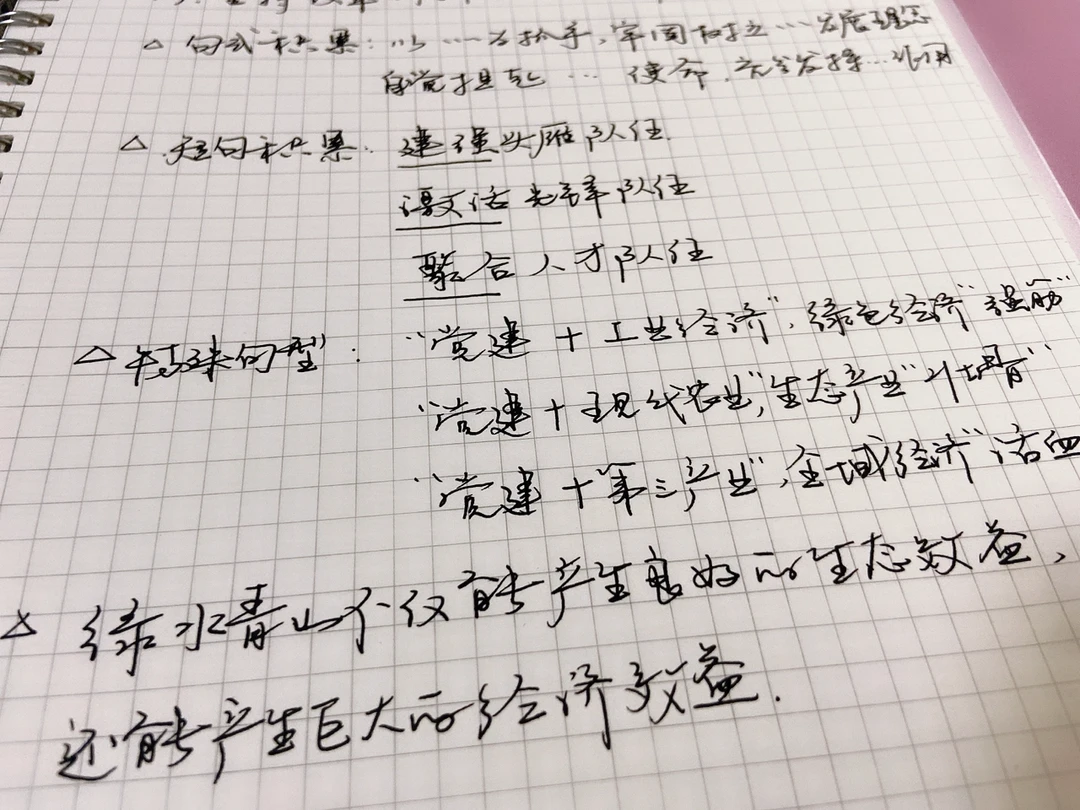 △ 句式积累: 以……为抓手, 牢固树立…发展理念
自觉担起… 使命, 充分发挥…作用
△ 短句积累: 建强头雁队伍
激活先锋队伍
聚合人才队伍
△ 特殊句型: “党建+工业经济”, 绿色经济“强筋”
“党建+现代农业”, 生态产业“培育”
“党建+第三产业”, 全域经济“活血
△ 绿水青山不仅能产生良好的生态效益,
还能产生巨大的经济效益.